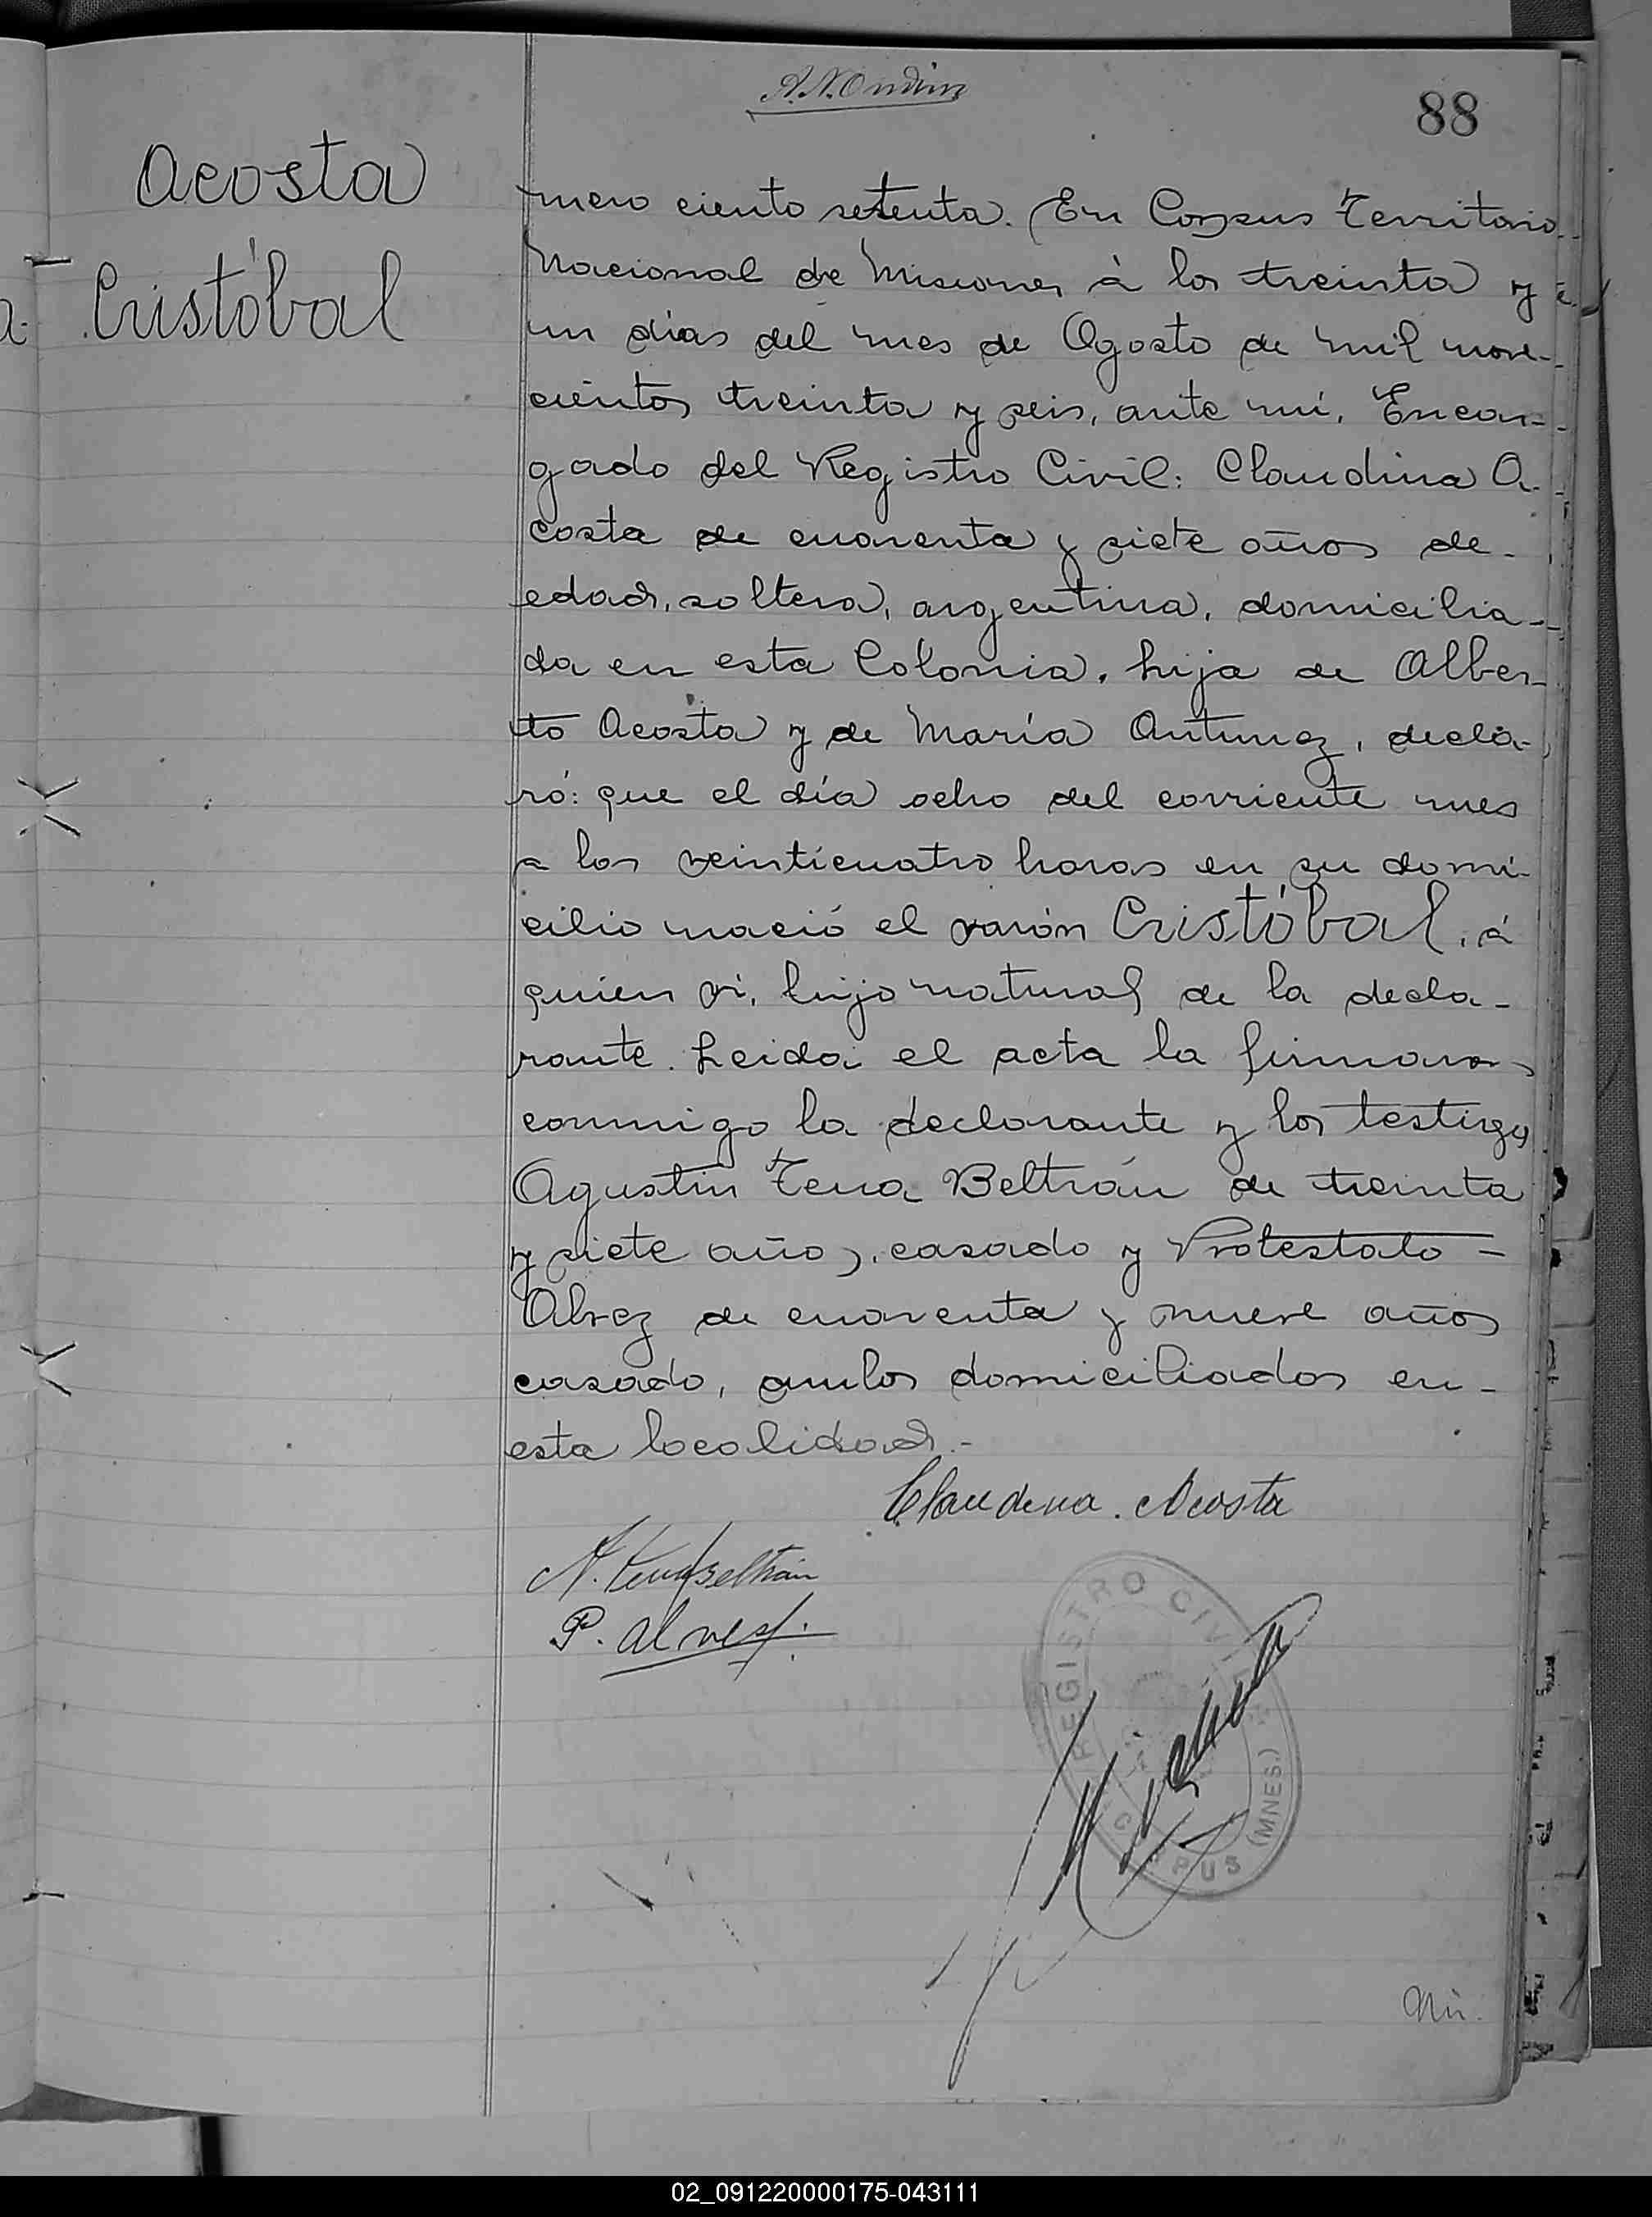 88
Acosta
Cristóbal
mero ciento setenta. En Corpus Territorio
Nacional de Misiones à los treinta y
un días del mes de Agosto de mil nove-
cientos treinta y seis, ante mí, Encar-
gado del Registro Civil: Claudina A-
costa de cuarenta y siete años de-
edad, soltera, argentina, domicilia-
da en esta Colonia, hija de Alber-
to Acosta y de María Antunez, decla-
ró: que el día ocho del corriente mes
a las veinticuatro horas en su domi-
cilio nació el varón Cristóbal, á
quien vi, hijo natural de la decla-
rante. Leida el acta la firmaron
conmigo la declarante y los testigos
Agustín Tena Beltrán de treinta
y siete años, casado y Protestato -
Alvez de cuarenta y nueve años
casado, ambos domiciliados en-
esta localidad.-
Claudena. Acosta
A. Tena Beltrán
P. Alvez.
REGISTRO CIVIL
CORPUS (MNES.)
02_091220000175-043111